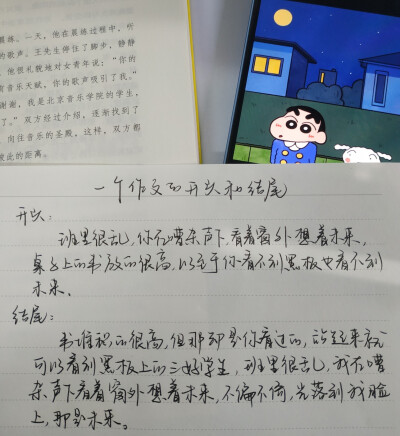 晨练。一天，他在晨练过程中，听
的歌声。王先生停住了脚步，静静
，他很礼貌地对女青年说：“你的
有音乐天赋，你的歌声吸引了我。”
谢谢，我是北京音乐学院的学生，
了。”双方经过介绍，逐渐找到了
、向往音乐的圣殿，这样，双方都
彼此的距离。
一个作文的开头和结尾
开头：
班里很乱，你在嘈杂声下，看着窗外想着未来，
桌子上的书放的很高，以至于你看不到黑板也看不到
未来。
结尾：
书堆积的很高，但那都是你看过的，站起来就
可以看到黑板上的三好学生，班里很乱，我在嘈
杂声下看着窗外想着未来，不偏不倚，光落到我脸
上，那是未来。